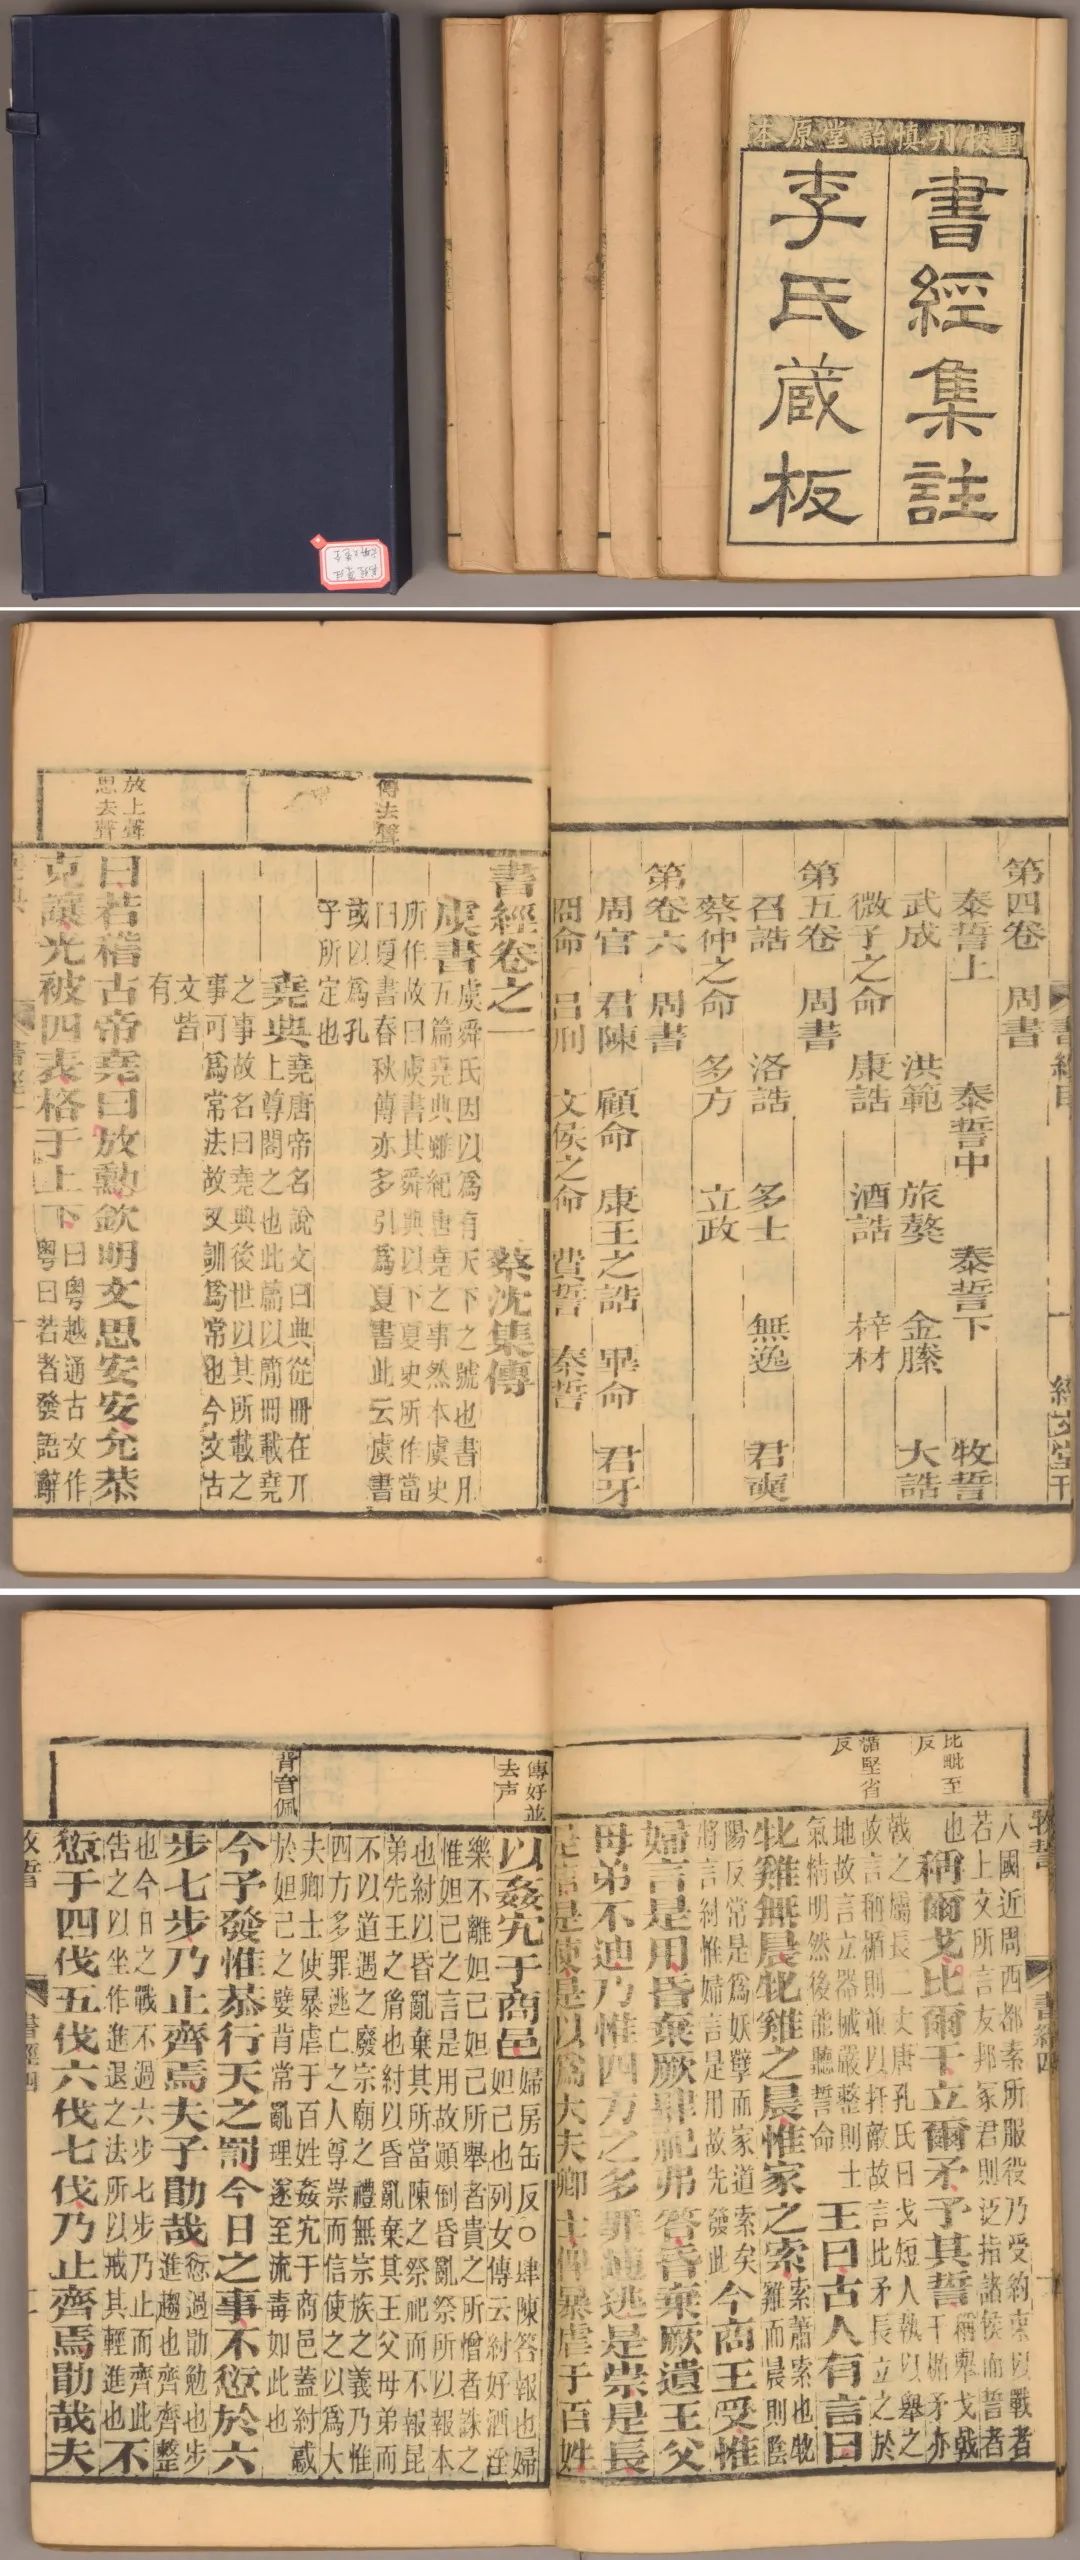 重校刊慎詒堂原本
書經集註
李氏蔵板
書經集注
第四卷 周書
泰誓上 泰誓中 泰誓下 牧誓
武成 洪範 旅獒 金縢 大誥
微子之命 康誥 酒誥 梓材
第五卷 周書
召誥 洛誥 多士 無逸 君奭
蔡仲之命 多方 立政
第六卷 周書
周官 君陳 顧命 康王之誥 畢命 君牙
冏命 呂刑 文侯之命 費誓 秦誓
傳去聲
放上聲
思去聲
書經卷之一 蔡沈集傳
虞書
虞舜氏因以為有天下之號也書凡
五篇堯典雖紀唐堯之事然本虞史
所作故曰虞書其舜典以下夏史所作當
曰夏書春秋傳亦多引為夏書此云虞書
或以為孔
子所定也
堯典
堯唐帝名說文曰典從冊在丌
上尊閣之也此蕭以簡冊載堯
之事故名曰堯典後世以其所載之
事可為常法故又訓為常也今文古
文皆
有
曰若稽古帝堯曰放勳欽明文思安安允恭
克讓光被四表格于上下
曰粵越通古文作
粵曰若者發語辭
比毗至
反
楯堅省
反
八國近周西都素所服役乃受約束以戰者
若上文所言友邦冢君則泛指諸侯而誓者
也
稱爾戈比爾干立爾矛予其誓
稱舉戈戟
干楯矛亦
戟之屬長二丈唐孔氏曰戈短人執以舉之
故言稱楯則並以扞敵故言比矛長立之於
地故言立器械嚴整則士
氣精明然後能聽誓命
王曰古人有言曰
牝雞無晨牝雞之晨惟家之索
索蕭索也牝
雞而晨則陰
陽反常是為妖孽而家道索矣
將言紂惟婦言是用故先發此
今商王受惟
婦言是用昏棄厥肆祀弗答昏棄厥遺王父
母弟不迪乃惟四方之多罪逋逃是崇是長
是信是使是以為大夫卿士俾暴虐于百姓
傳好並
去声
背音佩
以姦宄于商邑
婦房缶反○肆陳答報也婦
妲己也列女傳云紂好酒淫
樂不離妲己妲己所舉者貴之所憎者誅之
惟妲己之言是用故顛倒昏亂祭所以報本
也紂以昏亂棄其所當陳之祭祀而不報昆
弟先王之胤也紂以昏亂棄其王父母弟而
不以道遇之廢宗廟之禮無宗族之義乃惟
四方多罪逃亡之人尊崇而信使之以為大
夫卿士使暴虐于百姓姦宄于商邑蓋紂惑
於妲己之嬖背常亂理遂至流毒如此也
今予發惟恭行天之罰今日之事不愆於六
步七步乃止齊焉夫子勖哉
愆過勖勉也步
進趨也齊齊整
也今日之戰不過六步七步乃止而齊此
告之以坐作進退之法所以戒其輕進也
不
愆于四伐五伐六伐七伐乃止齊焉勖哉夫